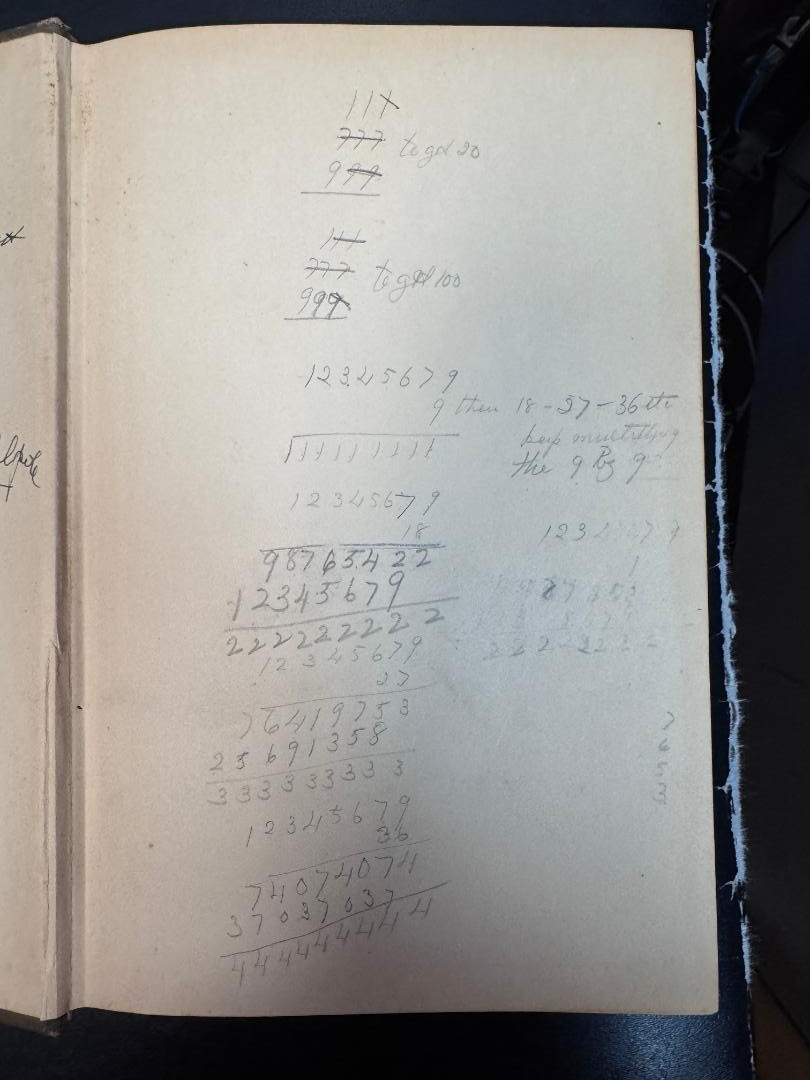 111
777 to get 20
999
111
777 to get 100
999
12345679
9 then 18 - 27 - 36 etc
keep multiplying
the 9 by 9
111111111
12345679
18
98765422
12345679
222222222
12345679
27
76419753
25691358
333333333
12345679
36
74074074
37037037
444444444
7
6
3